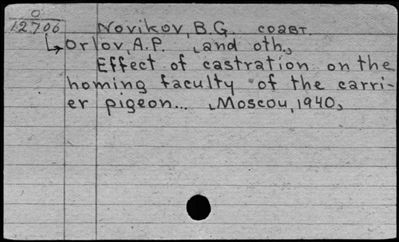 O
12706
Novikov, B.G. соавт.
Orlov, A.P. [and oth.]
Effect of castration on the
homing faculty of the carri-
er pigeon... [Moscow, 1940]